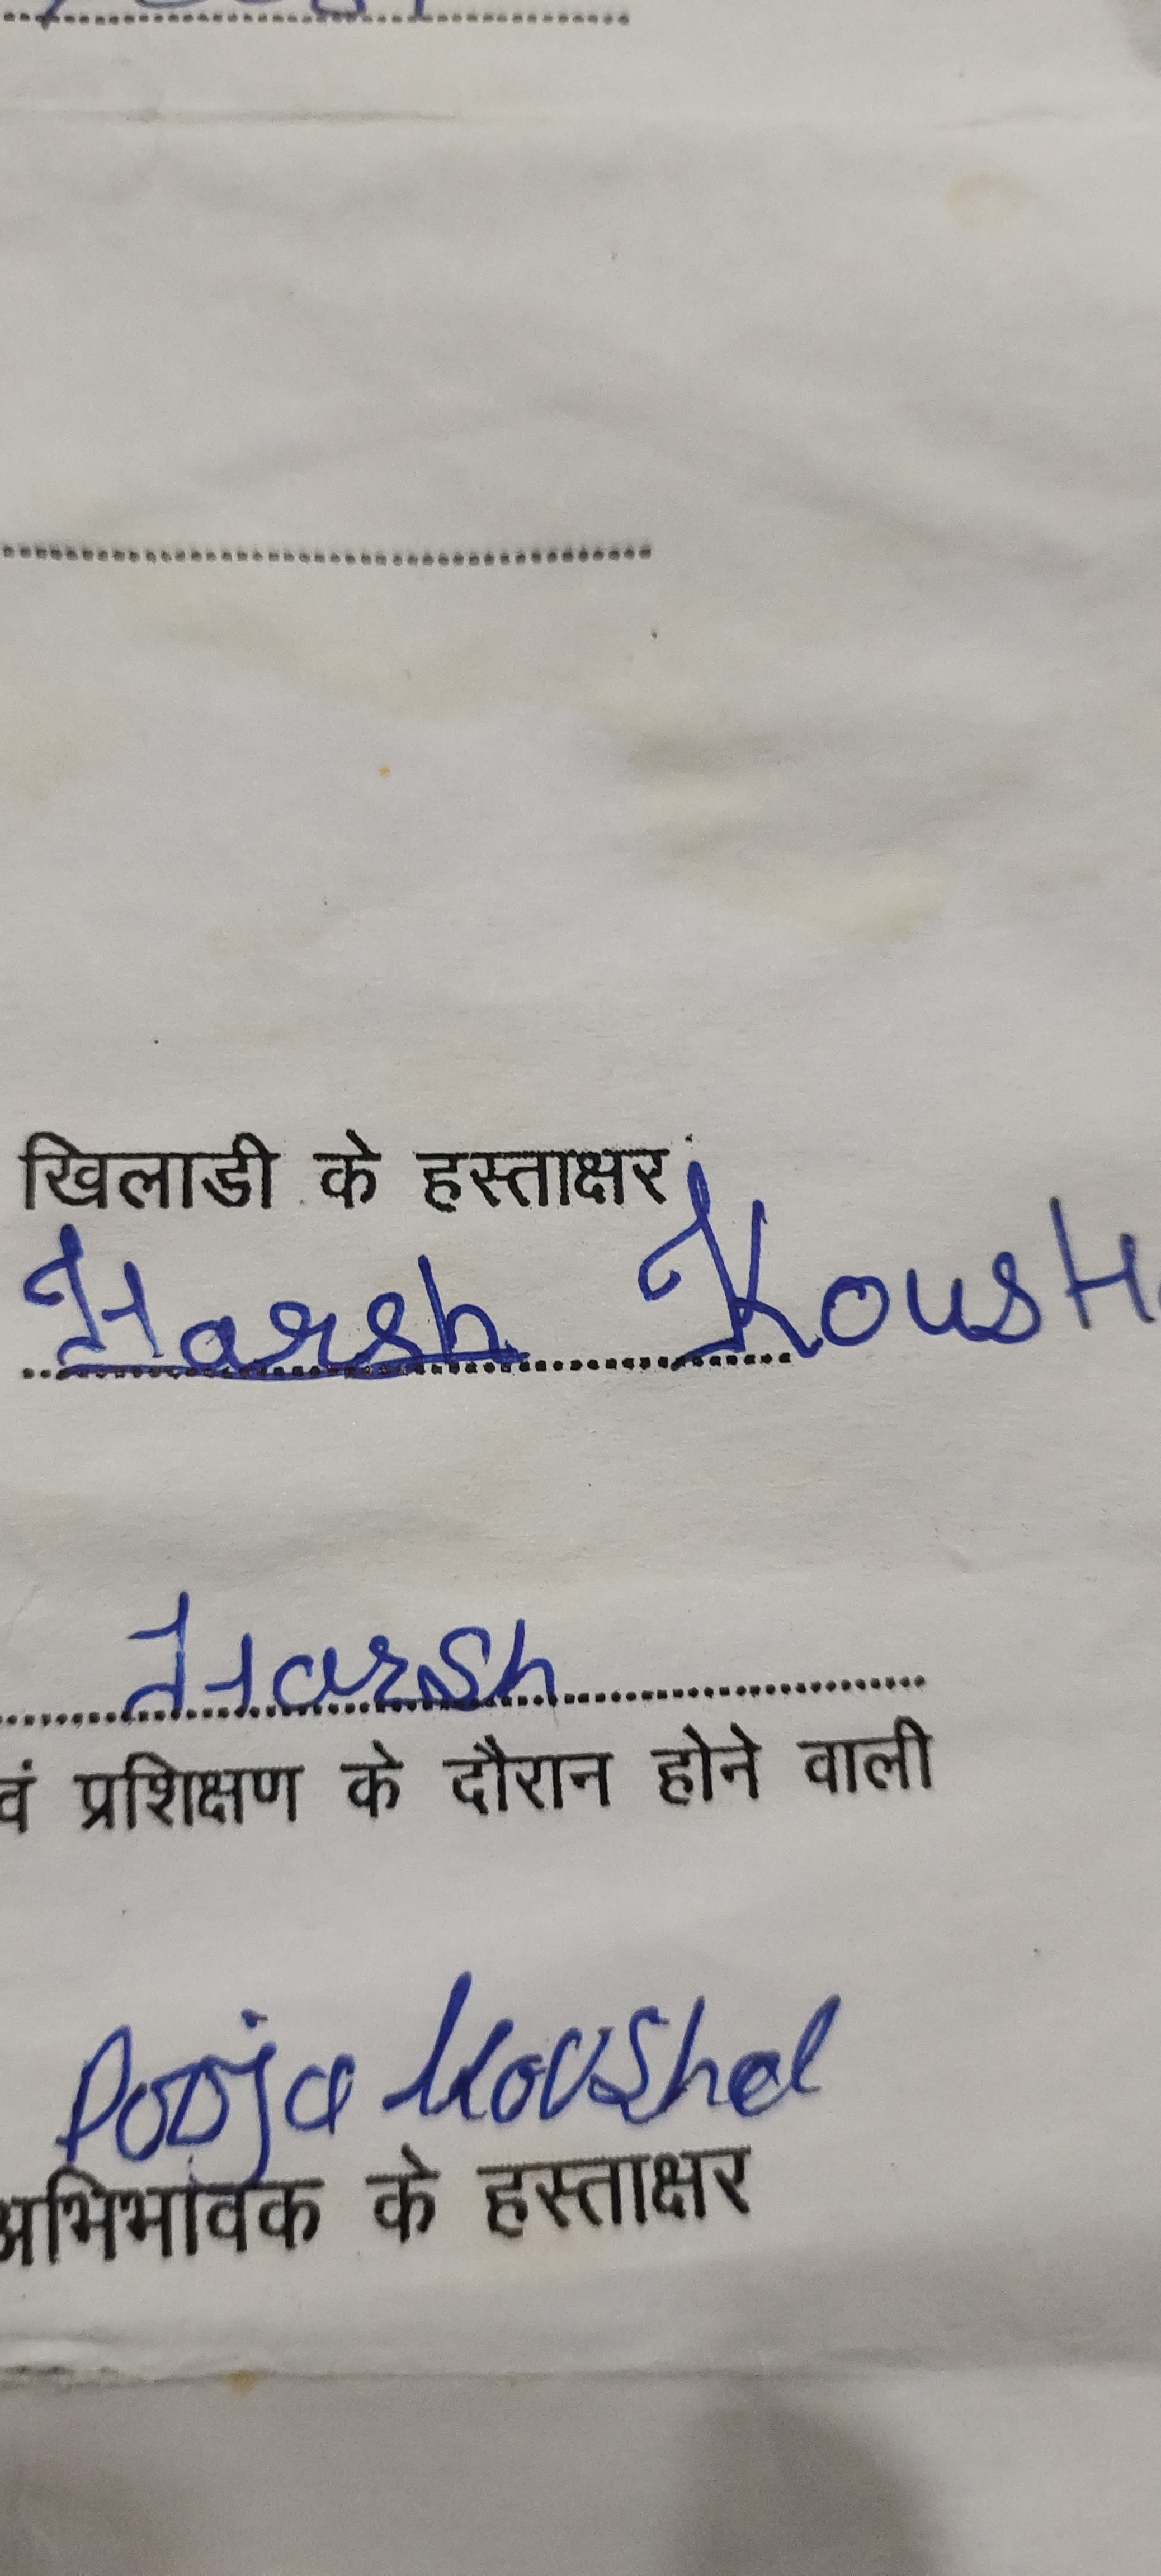 खिलाडी के हस्ताक्षर
Harsh Koush
Harsh
वं प्रशिक्षण के दौरान होने वाली
Pooja Koushal
अभिभावक के हस्ताक्षर